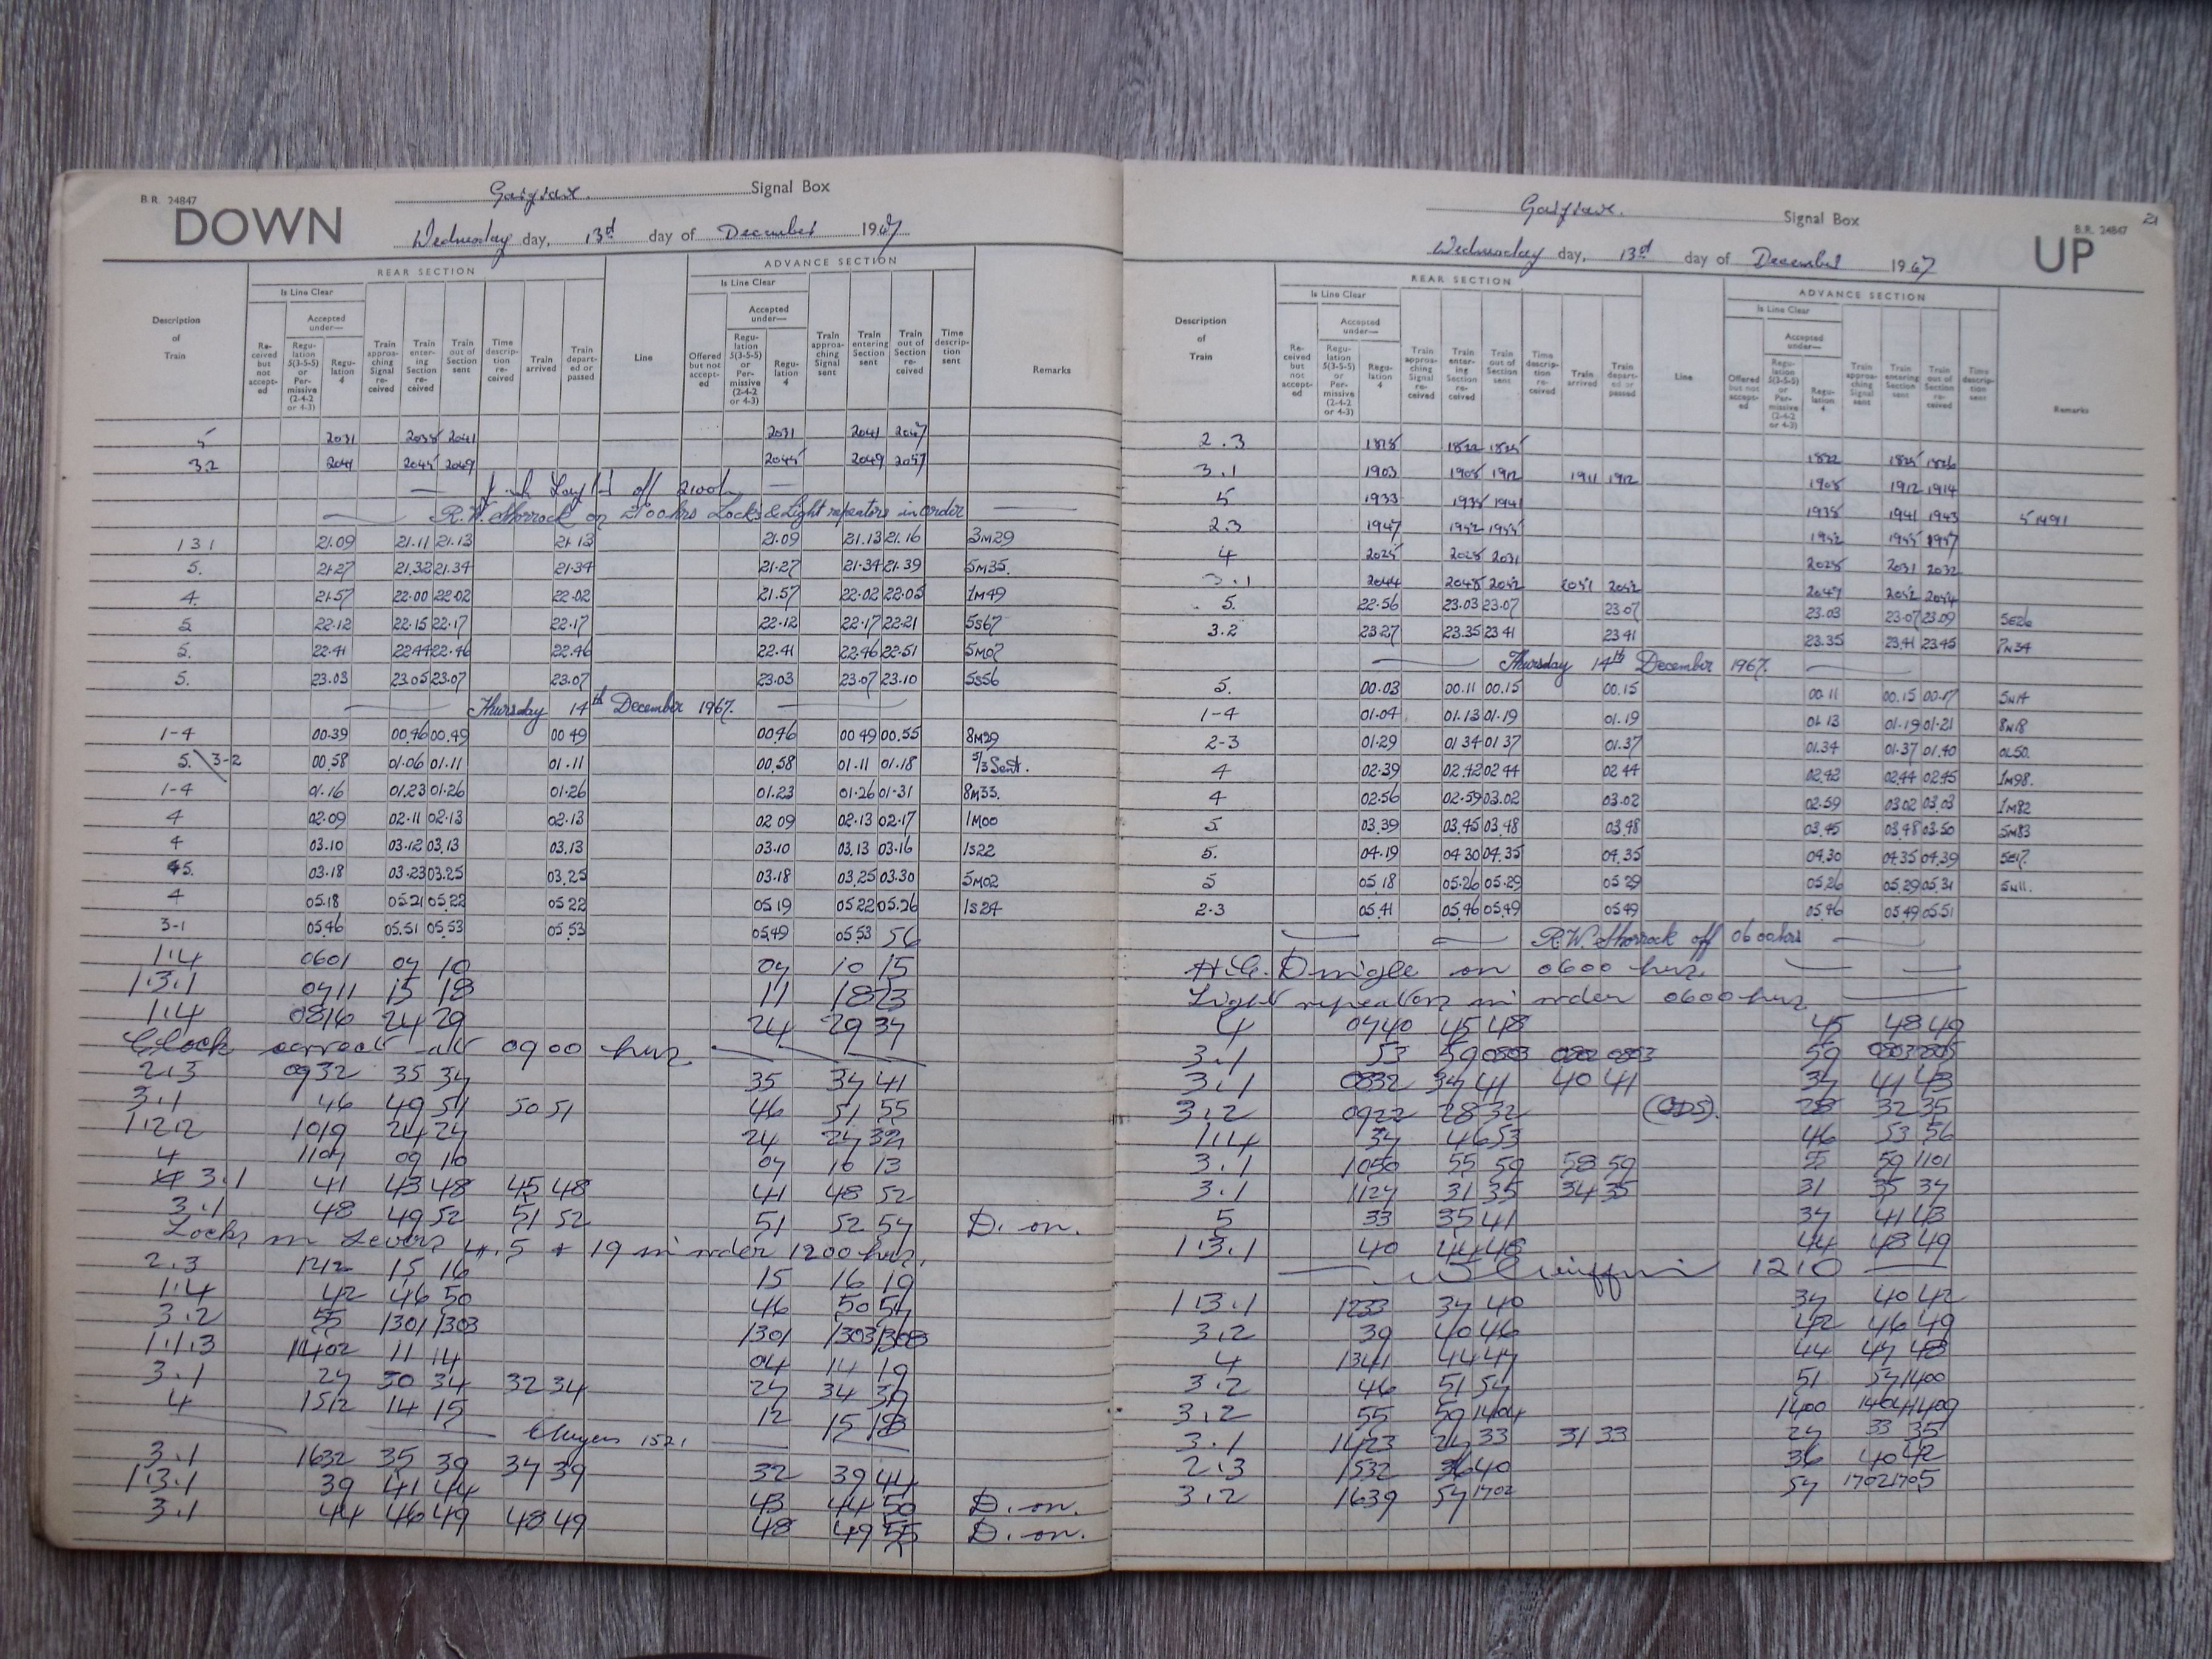 B.R. 24847
DOWN
Gargrave. Signal Box
Wednesday day, 13th day of December 1967
REAR SECTION
ADVANCE SECTION
Is Line Clear
Is Line Clear
Description of Train
Received but not accepted
Accepted under—
Regulation 5(3-5-5) or Permissive (2-4-2 or 4-3)
Regulation 4
Train approaching Signal received
Train entering Section received
Train out of Section sent
Time description received
Train arrived
Train departed or passed
Line
Offered but not accepted
Accepted under—
Regulation 5(3-5-5) or Permissive (2-4-2 or 4-3)
Regulation 4
Train approaching Signal sent
Train entering Section sent
Train out of Section received
Time description sent
Remarks
5 2031 2038 2041 2031 2041 2047
3.2 2041 2045 2049 2045 2049 2057
off 2100h
R.W. Shorrock on 2100hrs Locks & Light repeators in order
1 3 1 21.09 21.11 21.13 21.13 21.09 21.13 21.16 3M29
5. 21.27 21.32 21.34 21.34 21.27 21.34 21.39 5M35.
4. 21.57 22.00 22.02 22.02 21.57 22.02 22.05 1M49
5 22.12 22.15 22.17 22.17 22.12 22.17 22.21 5S67
5. 22.41 22.44 22.46 22.46 22.41 22.46 22.51 5M07
5. 23.03 23.05 23.07 23.07 23.03 23.07 23.10 5S56
Thursday 14th December 1967.
1-4 00.39 00.46 00.49 00 49 00.46 00 49 00.55 8M29
5. 3-2 00.58 01.06 01.11 01.11 00.58 01.11 01.18 5/3 Sent.
1-4 01.16 01.23 01.26 01.26 01.23 01.26 01.31 8M33.
4 02.09 02.11 02.13 02.13 02 09 02.13 02.17 1M00
4 03.10 03.12 03.13 03.13 03.10 03.13 03.16 1S22
5. 03.18 03.23 03.25 03.25 03.18 03.25 03.30 5M02
4 05.18 05 21 05.22 05 22 05 19 05 22 05.26 1S24
3-1 05.46 05.51 05.53 05.53 05.49 05 53 56
1.4 0601 07 10 07 10 15
1.3.1 0711 15 18 11 18 23
1.4 0816 24 29 24 29 37
Clock correct at 0900 hrs.
2.3 0932 35 37 35 37 41
3.1 46 49 51 50 51 46 51 55
1.2.2 1019 24 27 24 27 32
4 1107 09 10 07 10 13
3.1 41 43 48 45 48 41 48 52
3.1 48 49 52 51 52 51 52 57 D. on.
Locks on Levers 4.5 + 19 in order 1200 hrs.
2.3 1212 15 16 15 16 19
1.4 42 46 50 46 50 57
3.2 55 1301 1303 1301 1303 1308
1.1.3 1402 11 14 04 14 19
3.1 27 30 34 32 34 27 34 39
4 1512 14 15 12 15 18
1521
3.1 1632 35 39 37 39 32 39 44
1.3.1 39 41 44 43 44 50 D. on.
3.1 44 46 49 48 49 48 49 55 D. on.
21
B.R. 24847
UP
Gargrave. Signal Box
Wednesday day, 13th day of December 1967
REAR SECTION
ADVANCE SECTION
Is Line Clear
Is Line Clear
Description of Train
Received but not accepted
Accepted under—
Regulation 5(3-5-5) or Permissive (2-4-2 or 4-3)
Regulation 4
Train approaching Signal received
Train entering Section received
Train out of Section sent
Time description received
Train arrived
Train departed or passed
Line
Offered but not accepted
Accepted under—
Regulation 5(3-5-5) or Permissive (2-4-2 or 4-3)
Regulation 4
Train approaching Signal sent
Train entering Section sent
Train out of Section received
Time description sent
Remarks
2.3 1818 1822 1825 1822 1825 1826
3.1 1903 1908 1912 1911 1912 1908 1912 1914
5 1933 1938 1941 1938 1941 1943
2.3 1947 1952 1955 1952 1955 1957
4 2025 2028 2031 2028 2031 2032
3.1 2044 2048 2052 2051 2052 2047 2052 2054
5. 22.56 23.03 23.07 23.07 23.03 23.07 23.09 5E26
3.2 23 27 23.35 23 41 23 41 23.35 23.41 23.45 7N34
Thursday 14th December 1967.
5. 00.03 00.11 00.15 00.15 00 11 00.15 00.17 5N14
1-4 01.04 01.13 01.19 01.19 01 13 01.19 01.21 8N18
2-3 01.29 01 34 01 37 01.37 01.34 01.37 01.40 0L50
4 02.39 02.42 02 44 02 44 02.42 02.44 02.45 1M98.
4 02.56 02.59 03.02 03.02 02.59 03 02 03 03 1M82
5. 03.39 03.45 03.48 03.48 03.45 03.48 03.50 5M83
5. 04.19 04 30 04.35 04.35 04.30 04.35 04.39 5E17.
5 05.18 05.26 05.29 05 29 05.26 05.29 05.31 5N11.
2-3 05.41 05.46 05.49 05 49 05.46 05 49 05.51
R.W. Shorrock off 0600hrs
on 0600 hrs.
Light repeators in order 0600 hrs.
4 0740 45 48 45 48 49
3.1 53 59 0803 0802 0803 59 0803 0805
3.1 0832 37 41 40 41 37 41 43
3.2 0922 28 32 28 32 35
1.4 37 46 53 46 53 56
3.1 1050 55 59 58 59 55 59 1101
3.1 1127 31 35 34 35 31 35 37
5 33 35 41 37 41 43
1.3.1 40 44 48 44 48 49
1210
1.3.1 1233 37 40 37 40 42
3.2 39 40 46 42 46 49
4 1341 44 47 44 47 48
3.2 46 51 57 51 57 1400
3.2 55 59 1404 1400 1404 1409
3.1 1423 27 33 31 33 27 33 35
2.3 1532 36 40 36 40 42
3.2 1639 57 1702 57 1702 1705